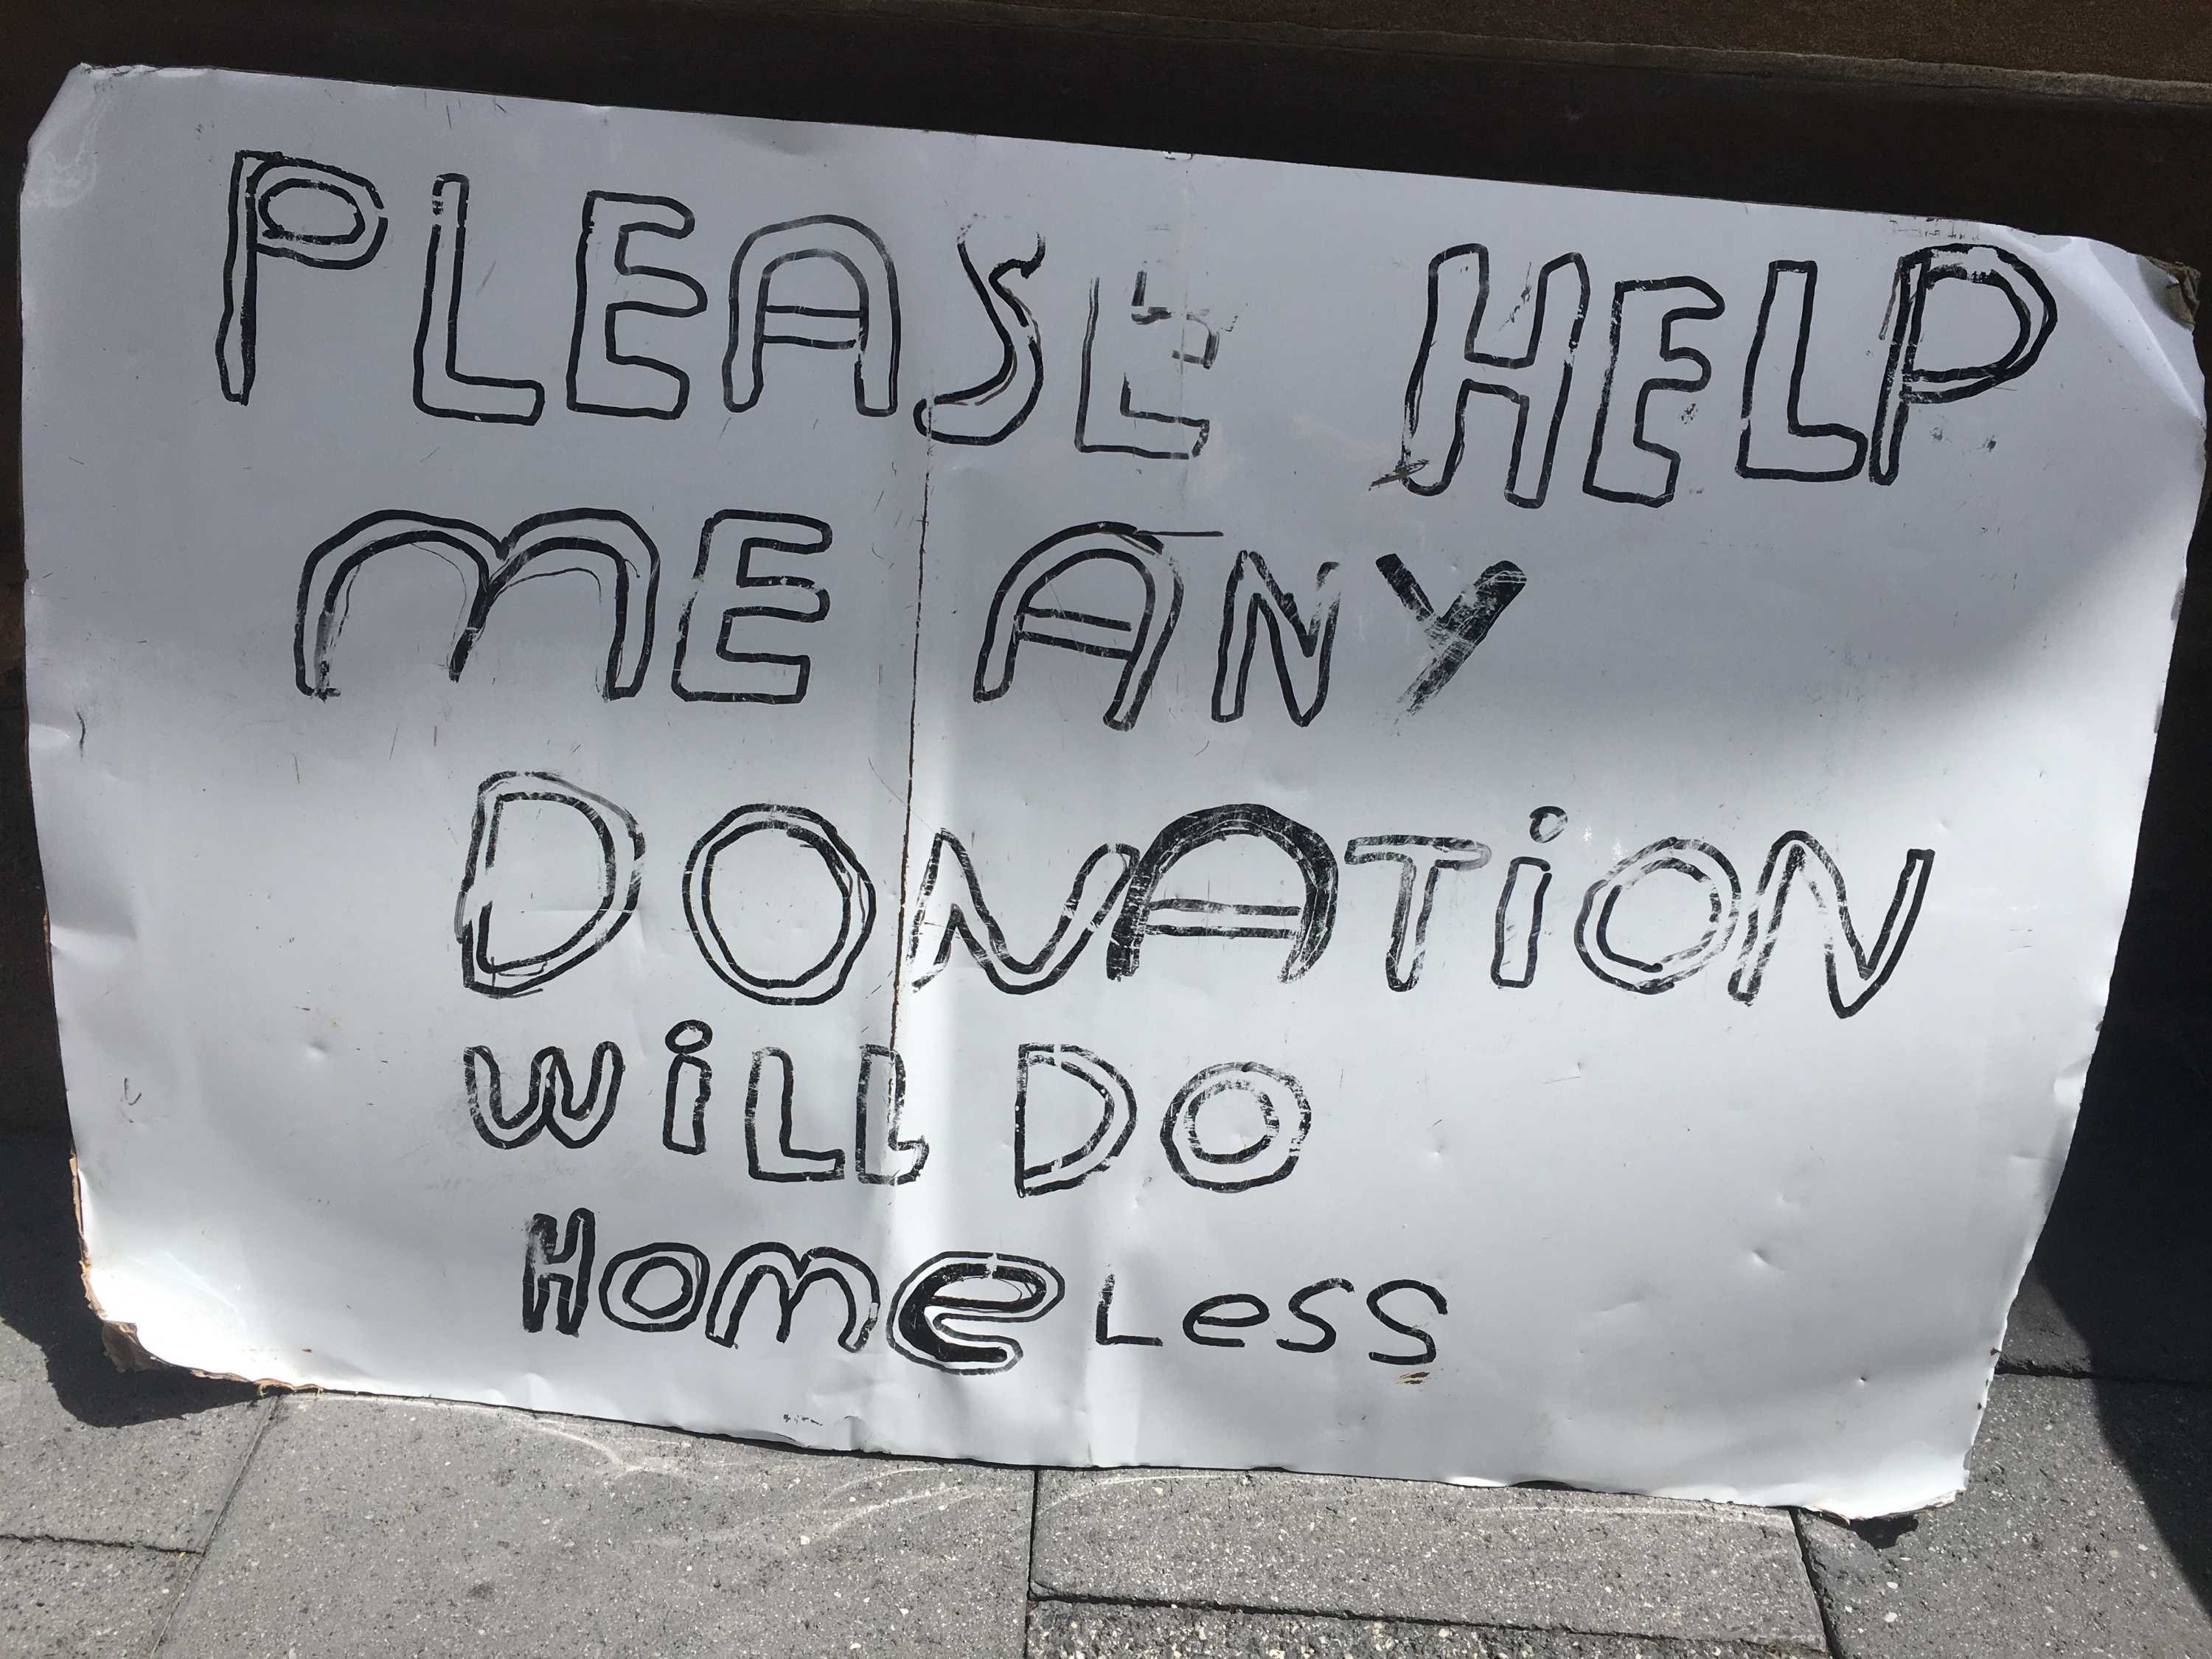 PLEASE HELP
ME ANY
DONATiON
WiLL DO
HomeLess